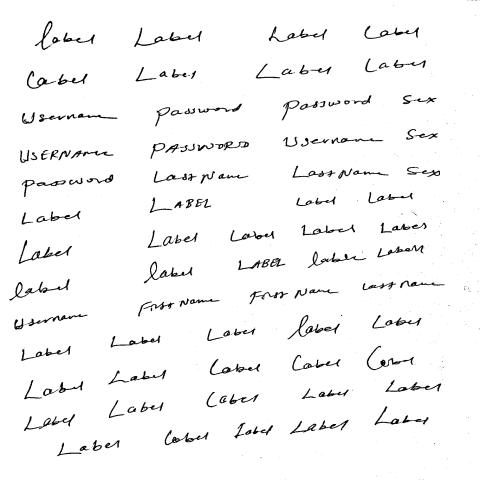 label Label Label Label
Label Label Label Label
Username password password Sex
USERNAME PASSWORD Username Sex
password Last Name Last Name Sex
Label LABEL Label Label
Label Label Label Label Label
label label LABEL label Label
Username First Name First Name Last Name
Label Label Label label Label
Label Label Label Label Label
Label Label Label Label Label
Label Label Label Label Label